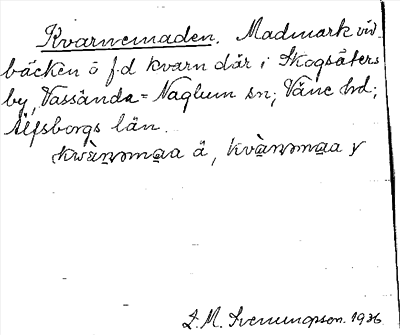 Kvarnemaden. Madmark vid
bäcken ö f.d kvarn där i Skogsäters
by, Vassända-Naglum sn; Väne hd;
Älfsborgs län.
kwànəmaa ä, kvànəmaa y
L. M. Svenungsson. 1936